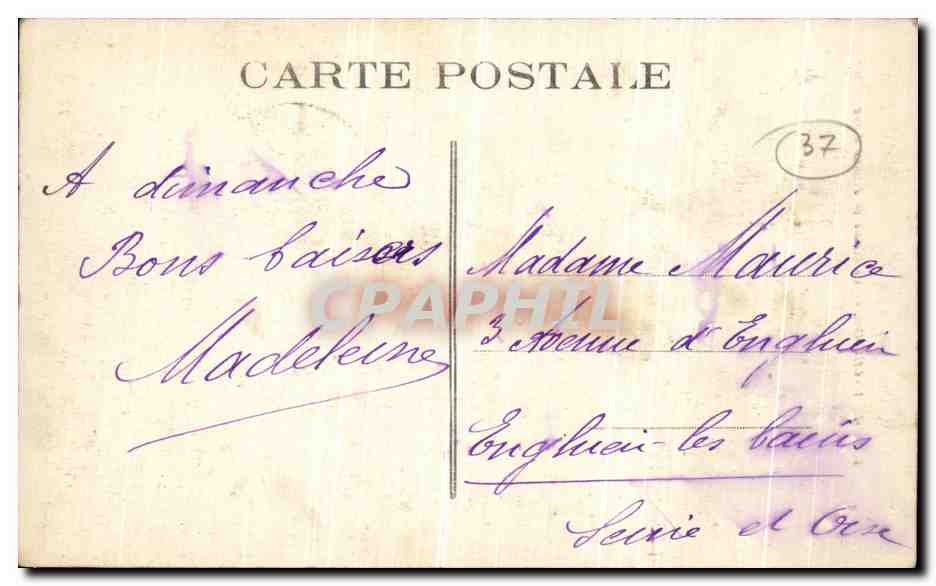 CARTE POSTALE
37
A dimanche
Bons baisers
Madeleine
Madame Maurice
3 Avenue d'Enghien
Enghien-les bains
Seine et Oise
CPAPHIL